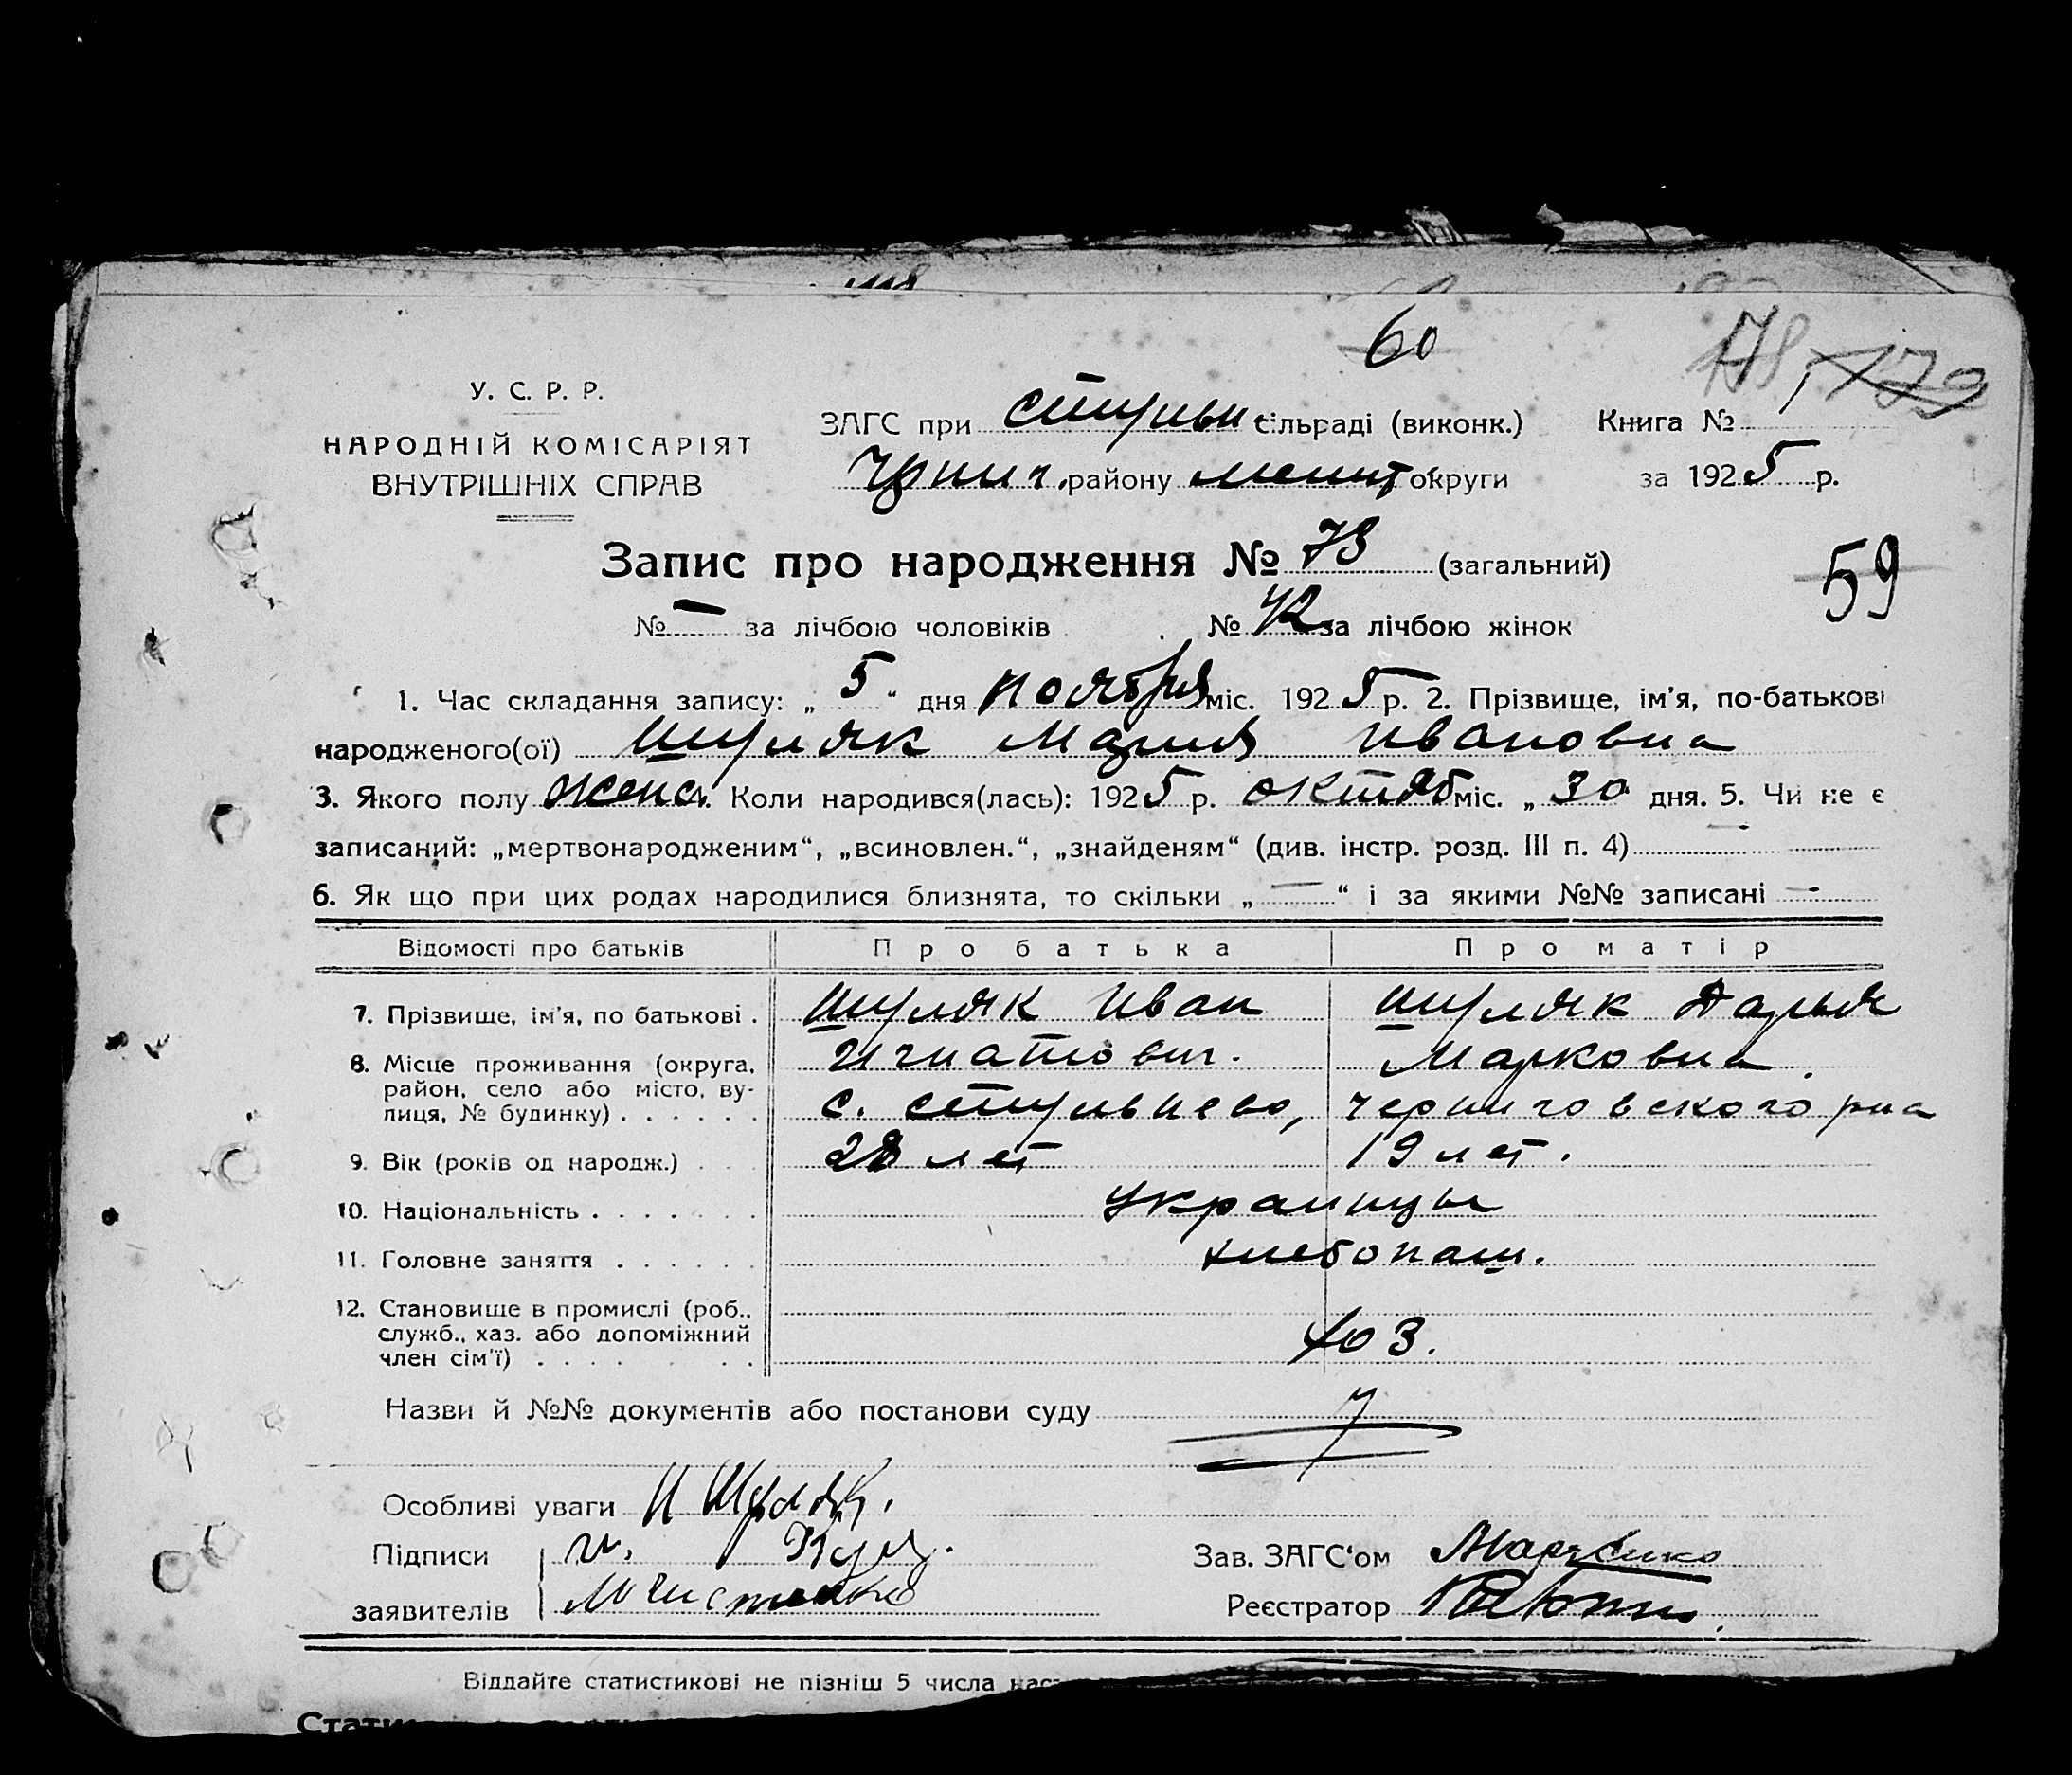 60
У. С. Р. Р.
НАРОДНІЙ КОМІСАРІЯТ
ВНУТРІШНІХ СПРАВ
ЗАГС при сільраді (виконк.) Книга № 1
району округи за 1925 р.
Запис про народження № 73 (загальний)
59
№ — за лічбою чоловіків № 42 за лічбою жінок
1. Час складання запису: „5“ дня ноября міс. 1925 р. 2. Прізвище, ім'я, по-батькові
народженого(ої) Шуляк Мария Ивановна
3. Якого полу женс. 4. Коли народився(лась): 1925 р. октяб міс. „30 дня. 5. Чи не є
записаний: „мертвонародженим“, „всиновлен.“, „знайденям“ (див. інстр. розд. III п. 4) —
6. Як що при цих родах народилися близнята, то скільки „—“ і за якими №№ записані —
Відомості про батьків Про батька Про матір
7. Прізвище, ім'я, по батькові . Шуляк Иван Шуляк Дарья
Игнатович. Марковна
8. Місце проживання (округа,
район, село або місто, ву-
лиця, № будинку) . . . . . . с. Стульнево, Черниговского рна
9. Вік (років од народж.) . . 28 лет 19 лет.
10. Національність . . . . . . . Украинцы
11. Головне заняття . . . . . . хлебопаш.
12. Становище в промислі (роб.,
служб., хаз. або допоміжний
член сім'ї) . . . . . . . хоз.
Назви й №№ документів або постанови суду
Особливі уваги И Шуляк.
Підписи
заявителів
Зав. ЗАГС'ом
Реєстратор
Віддайте статистикові не пізніш 5 числа наст